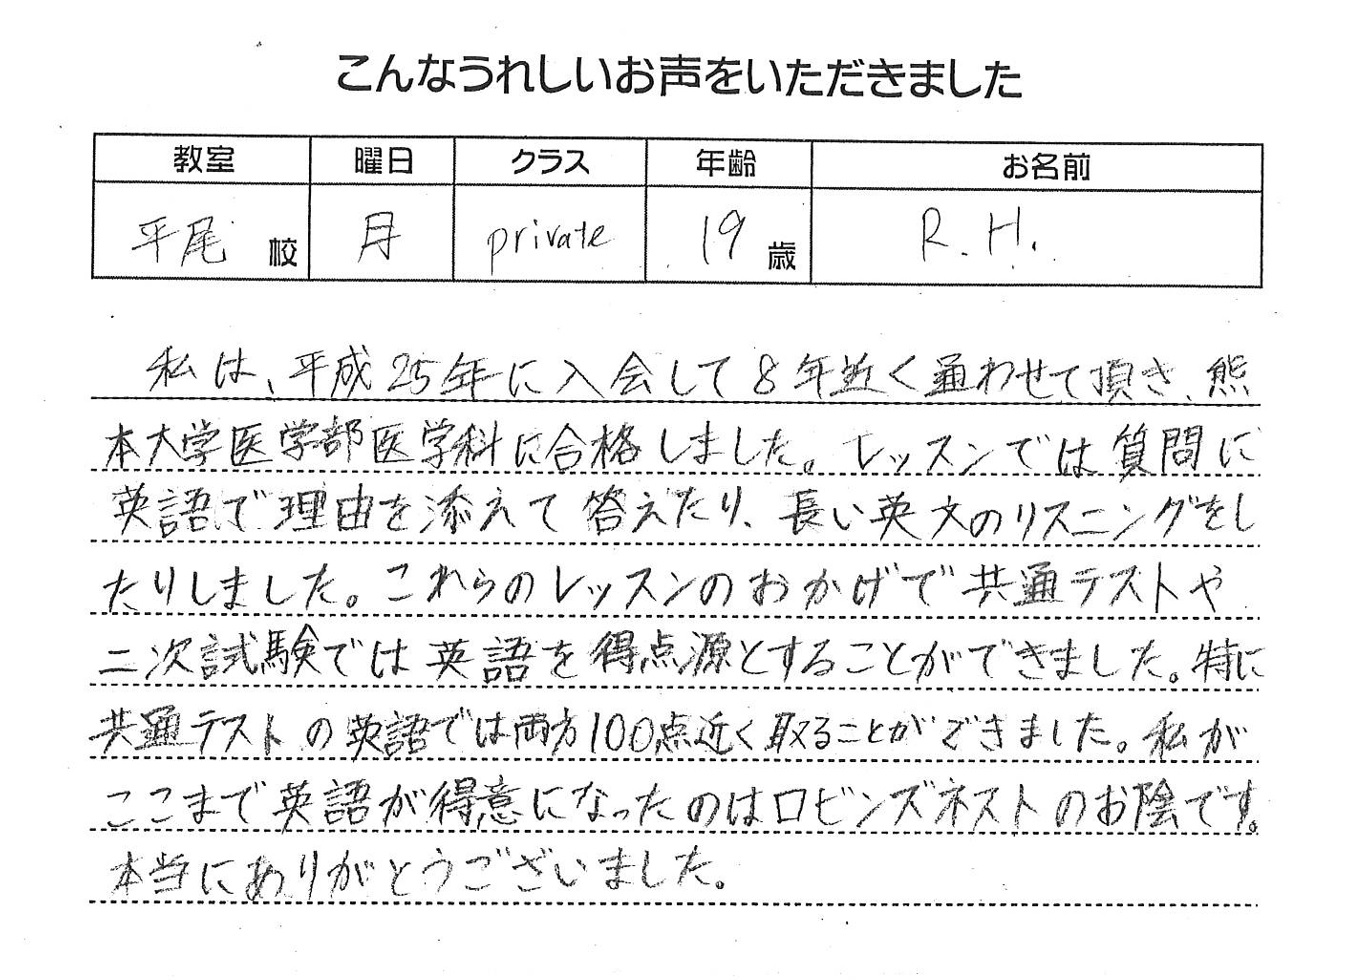 こんなうれしいお声をいただきました
教室 曜日 クラス 年齢 お名前
平尾 校 月 private 19 歳 R.H.
私は、平成25年に入会して8年近く通わせて頂き、熊
本大学医学部医学科に合格しました。レッスンでは質問に
英語で理由を添えて答えたり、長い英文のリスニングをし
たりしました。これらのレッスンのおかげで共通テストや
二次試験では英語を得点源とすることができました。特に
共通テストの英語では両方100点近く取ることができました。私が
ここまで英語が得意になったのはロビンズネストのお陰です。
本当にありがとうございました。